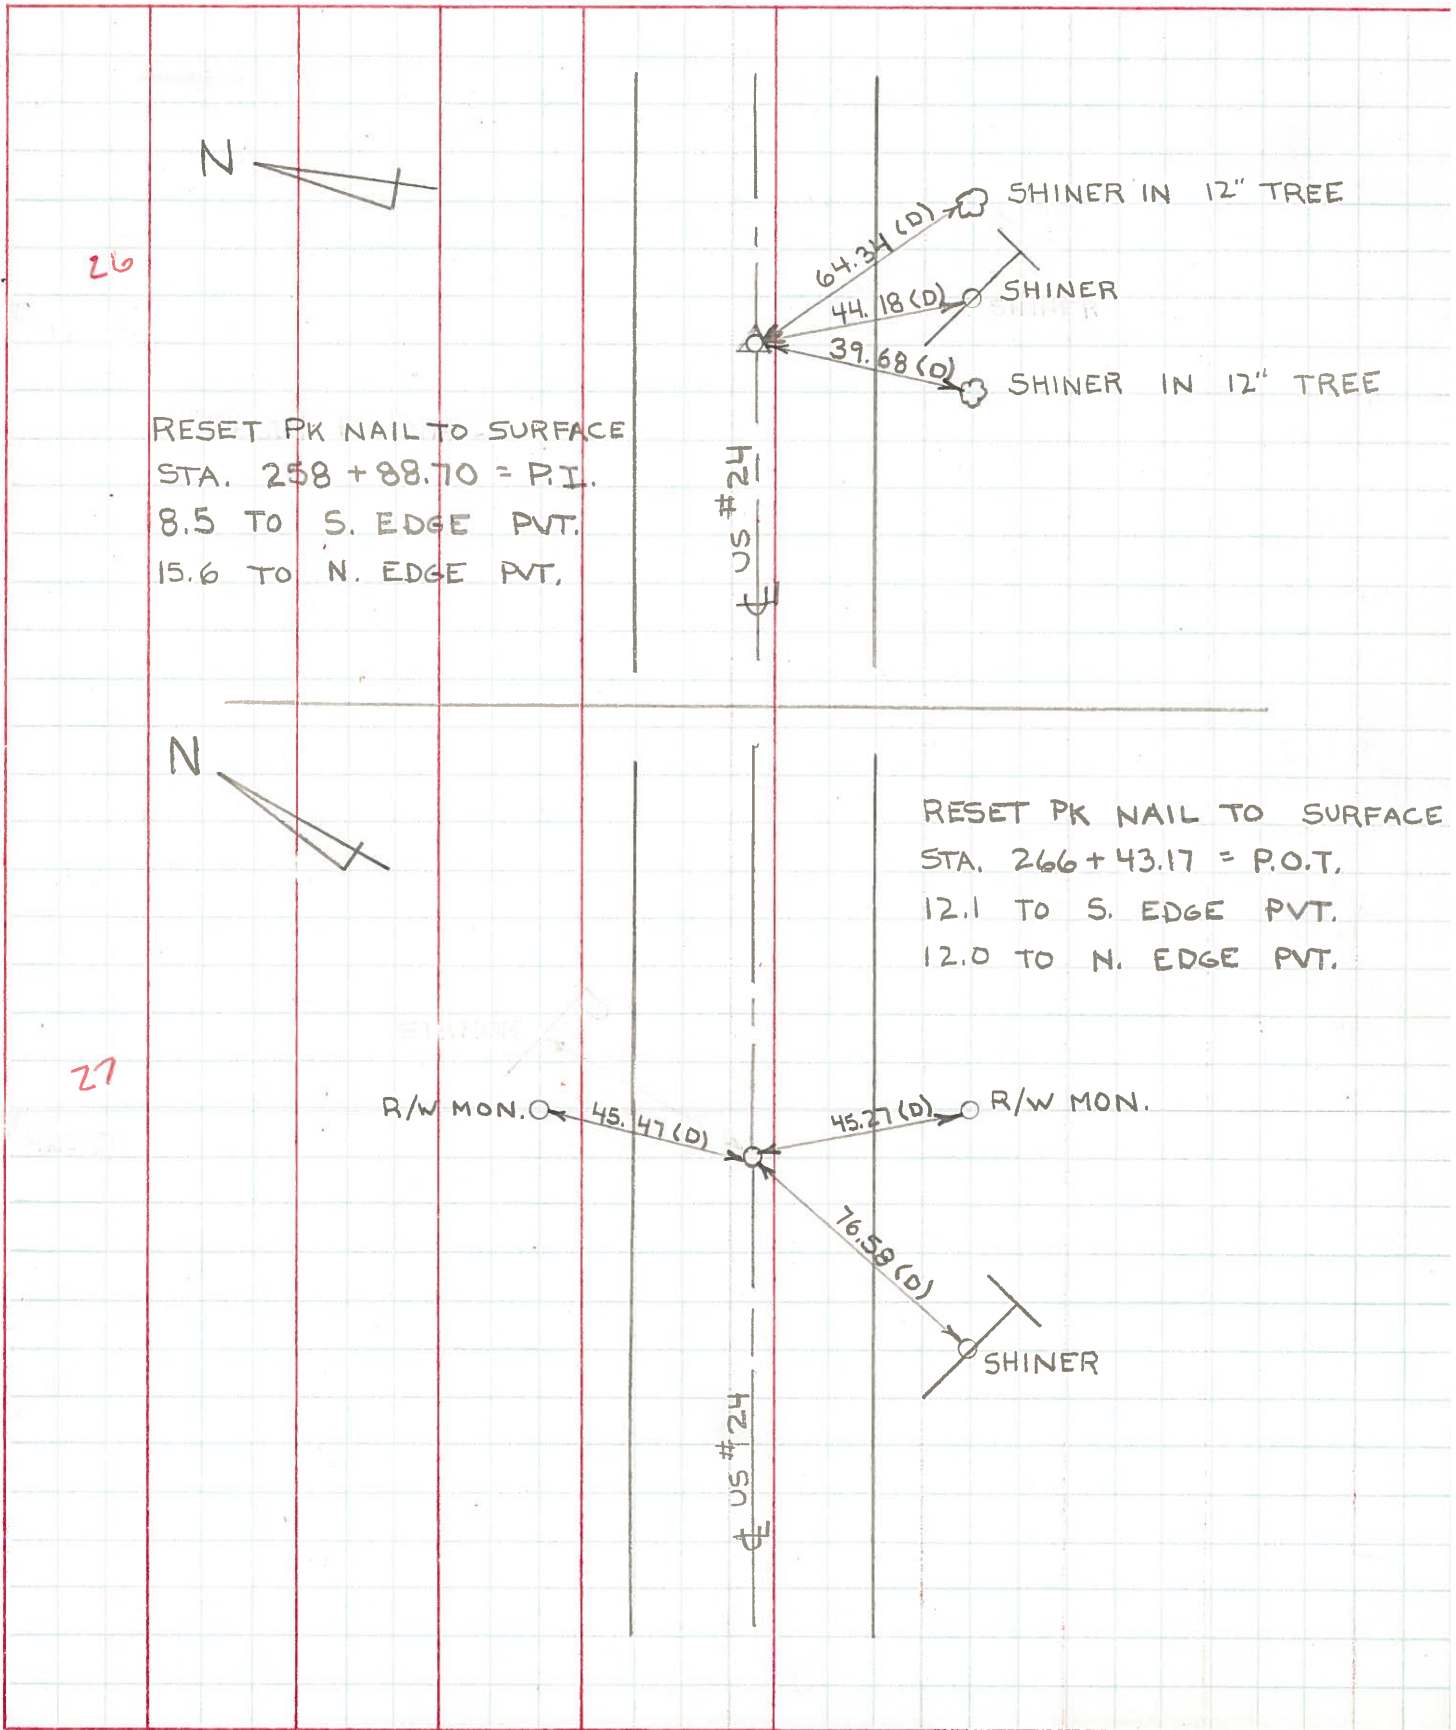 N
26
SHINER IN 12" TREE
64.34 (D)
SHINER
44.18 (D)
39.68 (D)
SHINER IN 12" TREE
RESET PK NAIL TO SURFACE
STA. 258 + 88.70 = P.I.
8.5 TO S. EDGE PVT.
15.6 TO N. EDGE PVT.
℄ US #24
N
RESET PK NAIL TO SURFACE
STA. 266 + 43.17 = P.O.T.
12.1 TO S. EDGE PVT.
12.0 TO N. EDGE PVT.
27
R/W MON.
45.47 (D)
45.27 (D)
R/W MON.
76.58 (D)
SHINER
℄ US #24